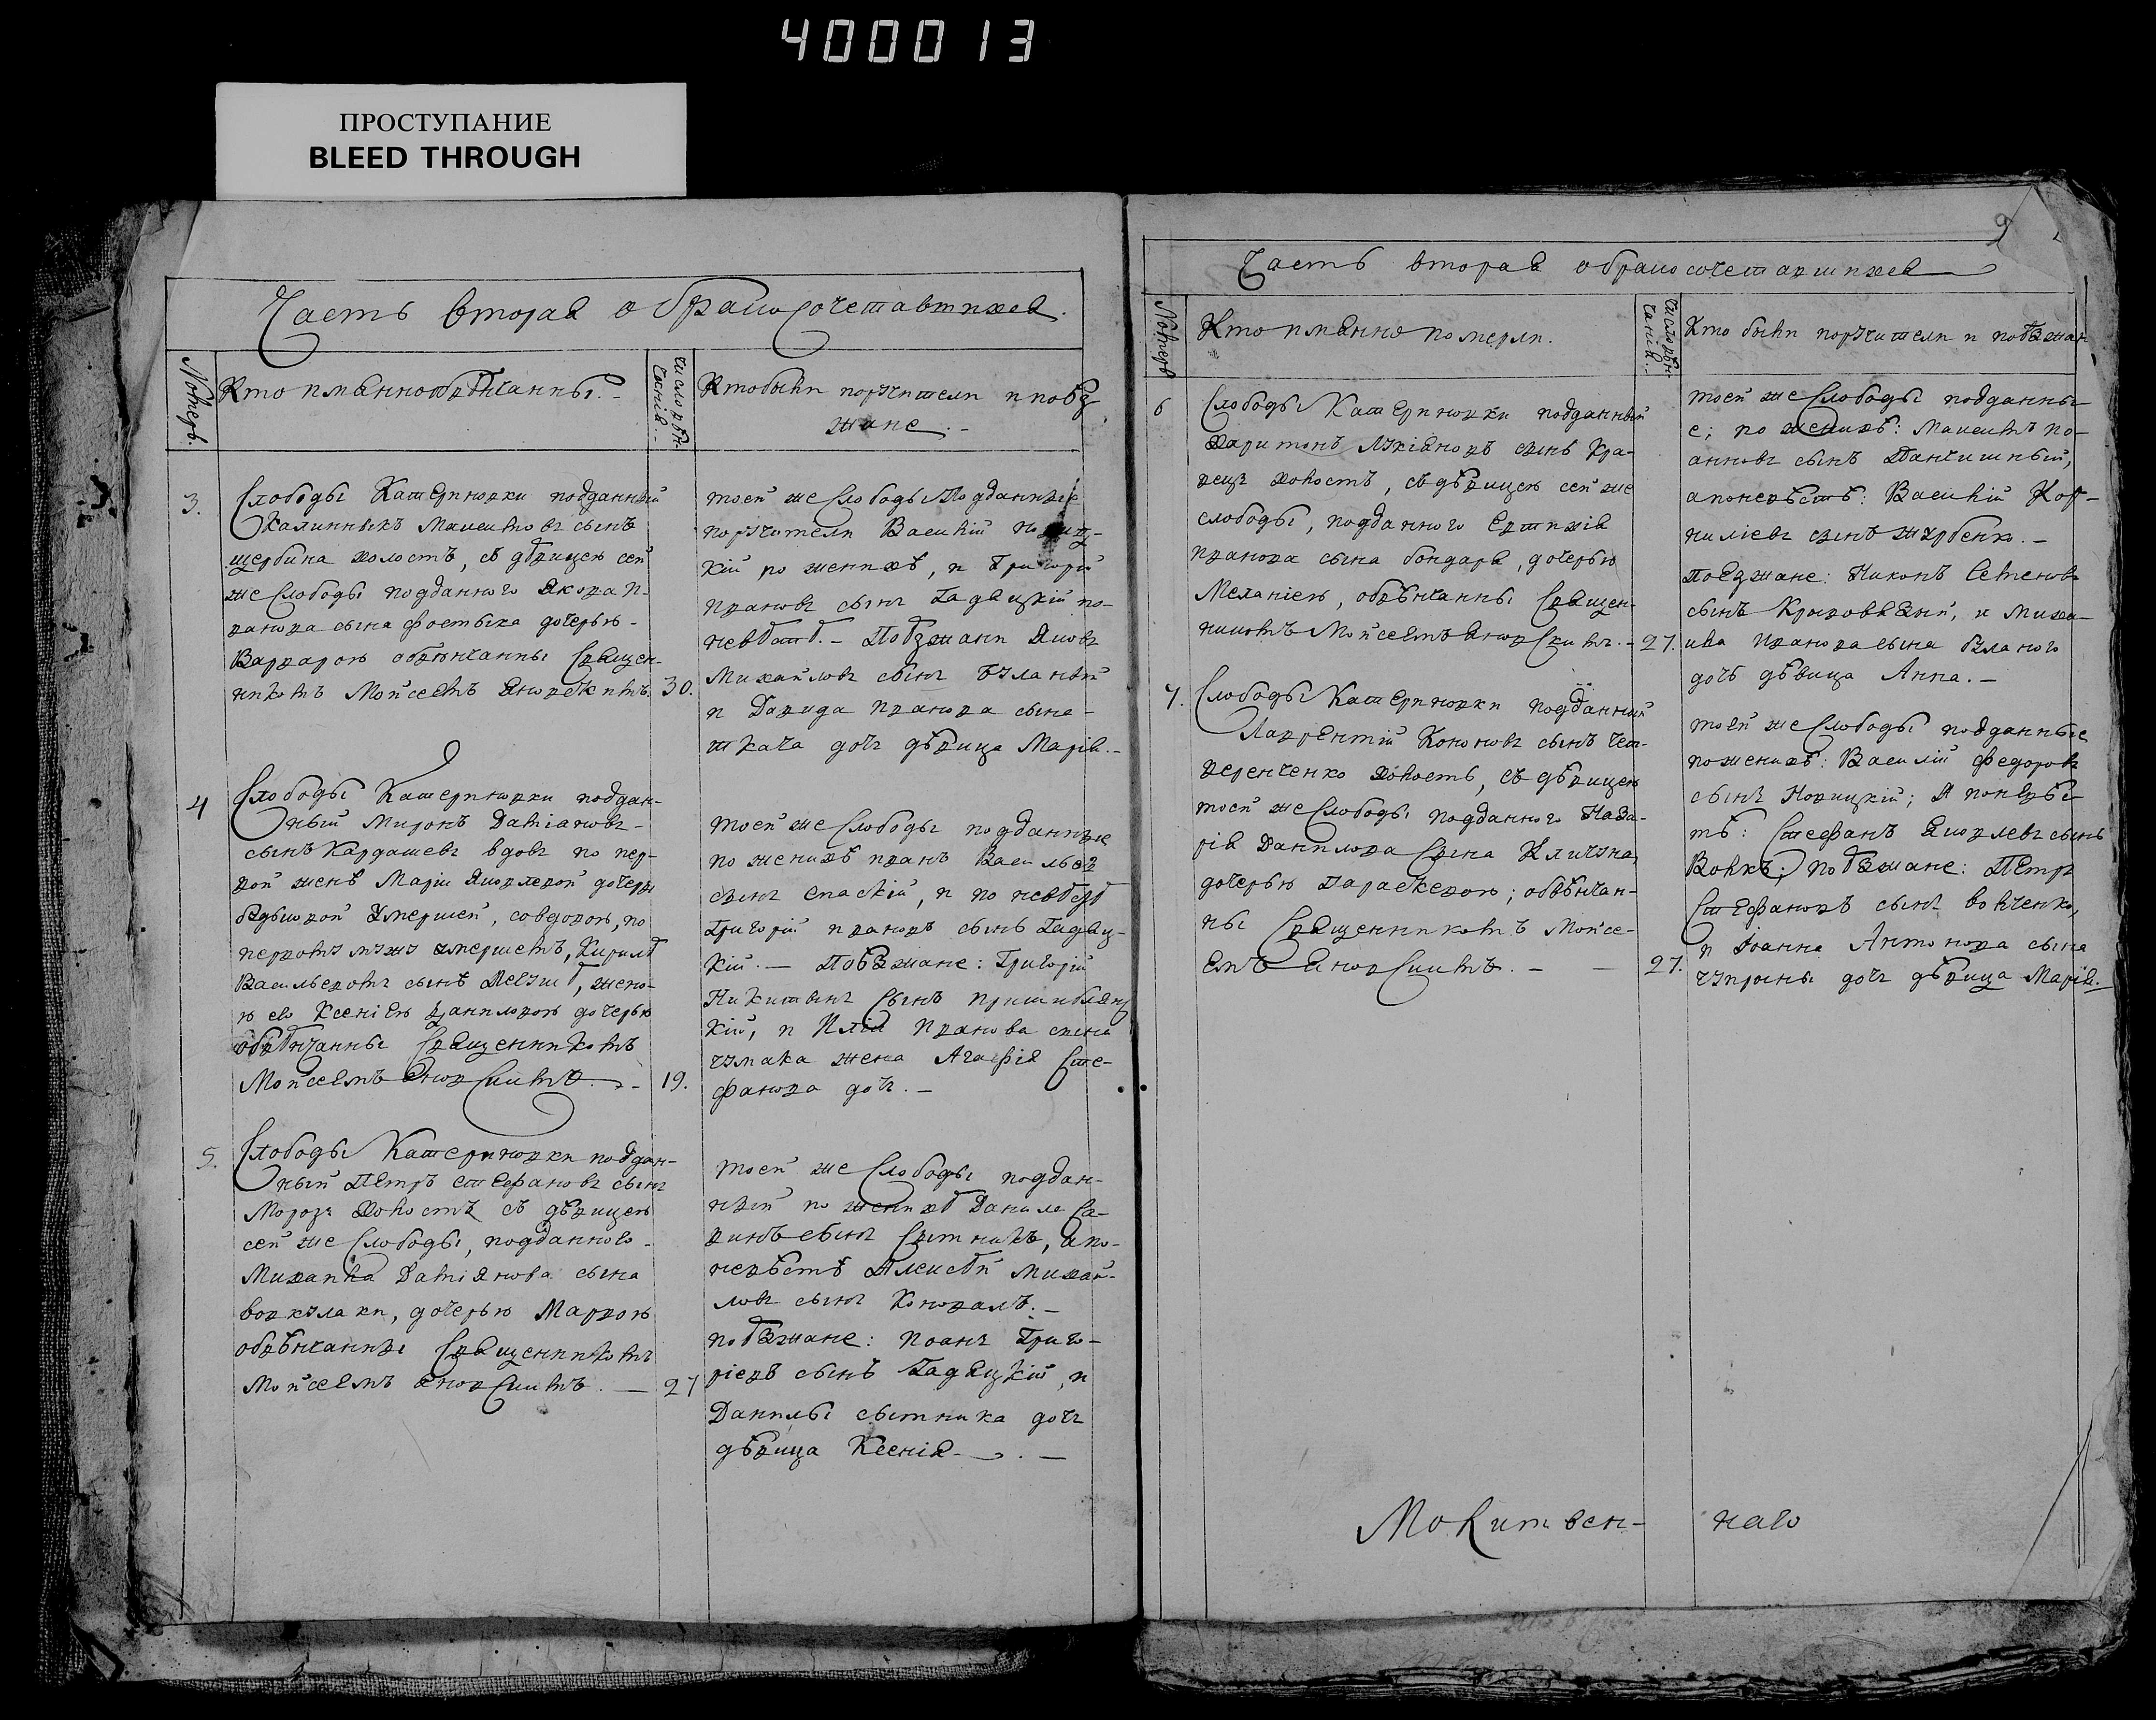 400013
ПРОСТУПАНИЕ
BLEED THROUGH
Часть вторая о бракосочетавшихся.
Номеръ.
Кто имянно обвѣнчанны.
Число вѣн-
чанія.
Кто были поручители и поѣз-
жане.
3.
Слободы Катериновки подданный
Калинникъ
сынъ
щербина холостъ, съ дѣвицею сей
же Слободы подданного Якова И-
ванова сына дочерью
Варварою обвѣнчанны Священ-
никомъ Мойсеемъ 30.
тоей же Слободы Подданные
поручители Василій
кій по женихѣ, и Григорій
Ивановъ сынъ Гадяцкій по
невѣстѣ. – Поѣзжани Яковъ
Михайловъ сынъ
и Давида Иванова сына
ткача дочь дѣвица Марія. –
4
Слободы Катериновки поддан-
ный Миронъ Даміановъ
сынъ Кардашевъ вдовъ по пер-
вой женѣ Маріи Яковлевой дочери
умершей, со вдовою, по
первомъ мужу умершемъ, Кирилѣ
Васильевомъ сынѣ жено-
ю его Ксеніею Даниловою дочерью
обвѣнчанны Священникомъ
Мойсеемъ 19.
тоей же Слободы подданные
по женихѣ Иванъ Васильевъ
сынъ Спаскій, и по невѣстѣ
Григорій Ивановъ сынъ Гадяц-
кій. – Поѣзжане: Григорій
Никитинъ сынъ
кій, и Илліи Иванова сына
чумака жена Агафія Сте-
фанова дочь. –
5.
Слободы Катериновки поддан-
ный Петръ Стефановъ сынъ
Морозъ холостъ съ дѣвицею
сей же Слободы, подданного
Михаила Даміянова сына
вовкулаки, дочерью Марѳою
обвѣнчанны Священникомъ
Мойсеемъ 27
тоей же Слободы поддан-
ный по женихѣ Данило Са-
винъ сынъ Сытникъ, а по
невѣстѣ Алексѣй Михай-
ловъ сынъ Коновалъ. –
поѣзжане: Иоанъ Григо-
ріевъ сынъ Гадяцкій, и
Данилы сытника дочь
дѣвица Ксенія. –
9
Часть вторая о бракосочетавшихся
Номеръ
Кто имянно померли.
Число вѣн-
чанія.
Кто были поручители и поѣзжан
6
Слободы Катериновки подданный
Харитонъ Лукіяновъ сынъ Кра-
вецъ холостъ, съ дѣвицею сей же
слободы, подданного Евтихія
Иванова сына бондаря, дочерью
Меланіею, обвѣнчанны Священ-
никомъ Мойсеемъ 27.
тоей же Слободы подданны-
е; по женихѣ: Ио-
анновъ сынъ
а по невѣстѣ: Василій Кор-
ниліевъ сынъ
Поѣзжане: Никонъ Семеновъ
сынъ и Миха-
ила Иванова сына
дочь дѣвица Анна. –
7.
Слободы Катериновки подданный
Лаврентій Кононовъ сынъ Чет-
веренченко холостъ, съ дѣвицею
тоей же Слободы подданного Наза-
рія Данилова сына
дочерью Параскевою; обвѣнчан-
ны Священникомъ Мойсе-
емъ 27.
тоей же Слободы подданные
по женихѣ: Василій Федоровъ
сынъ Новицкій; а по невѣс-
тѣ: Стефанъ Яковлевъ сынъ
Вовкъ; поѣзжане: Петръ
Стефановъ сынъ вовченко,
и Іоанна Антонова сына
чупрыны дочь дѣвица Марія. –
Молитвен- наго